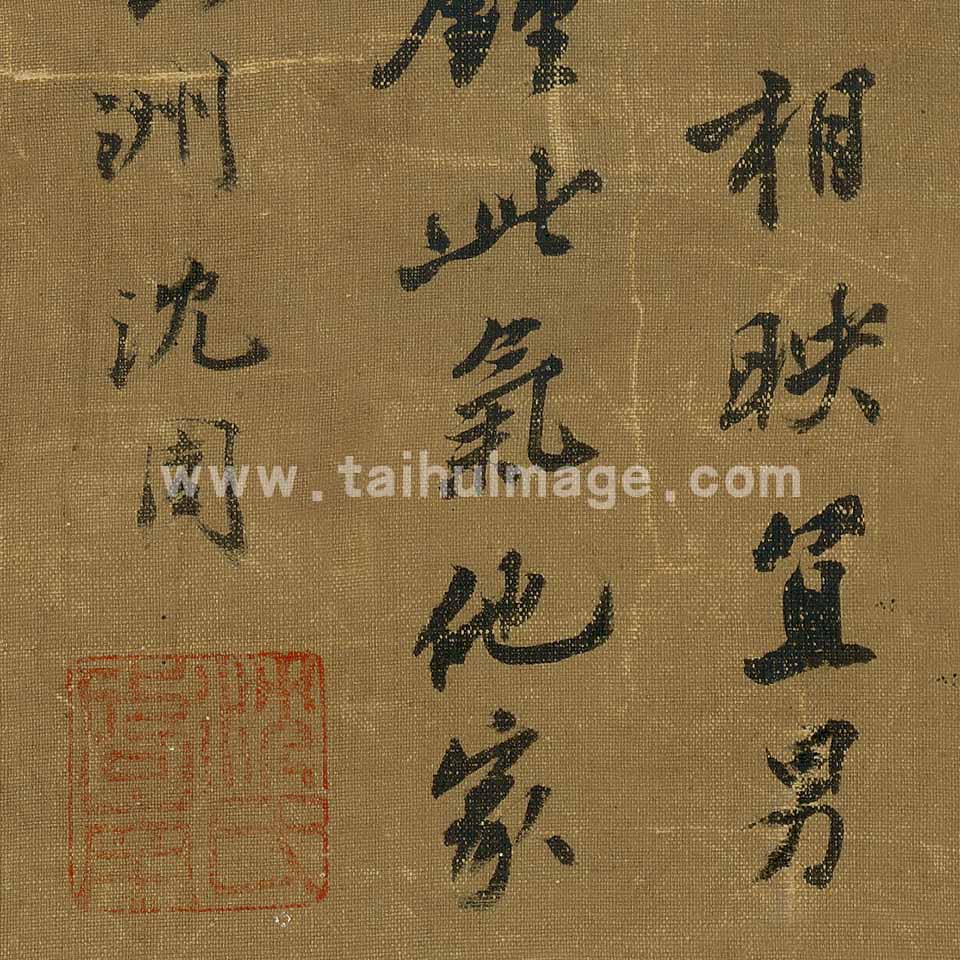 相映宜男
鍾此氣他家
洲沈周
www.taihuimage.com